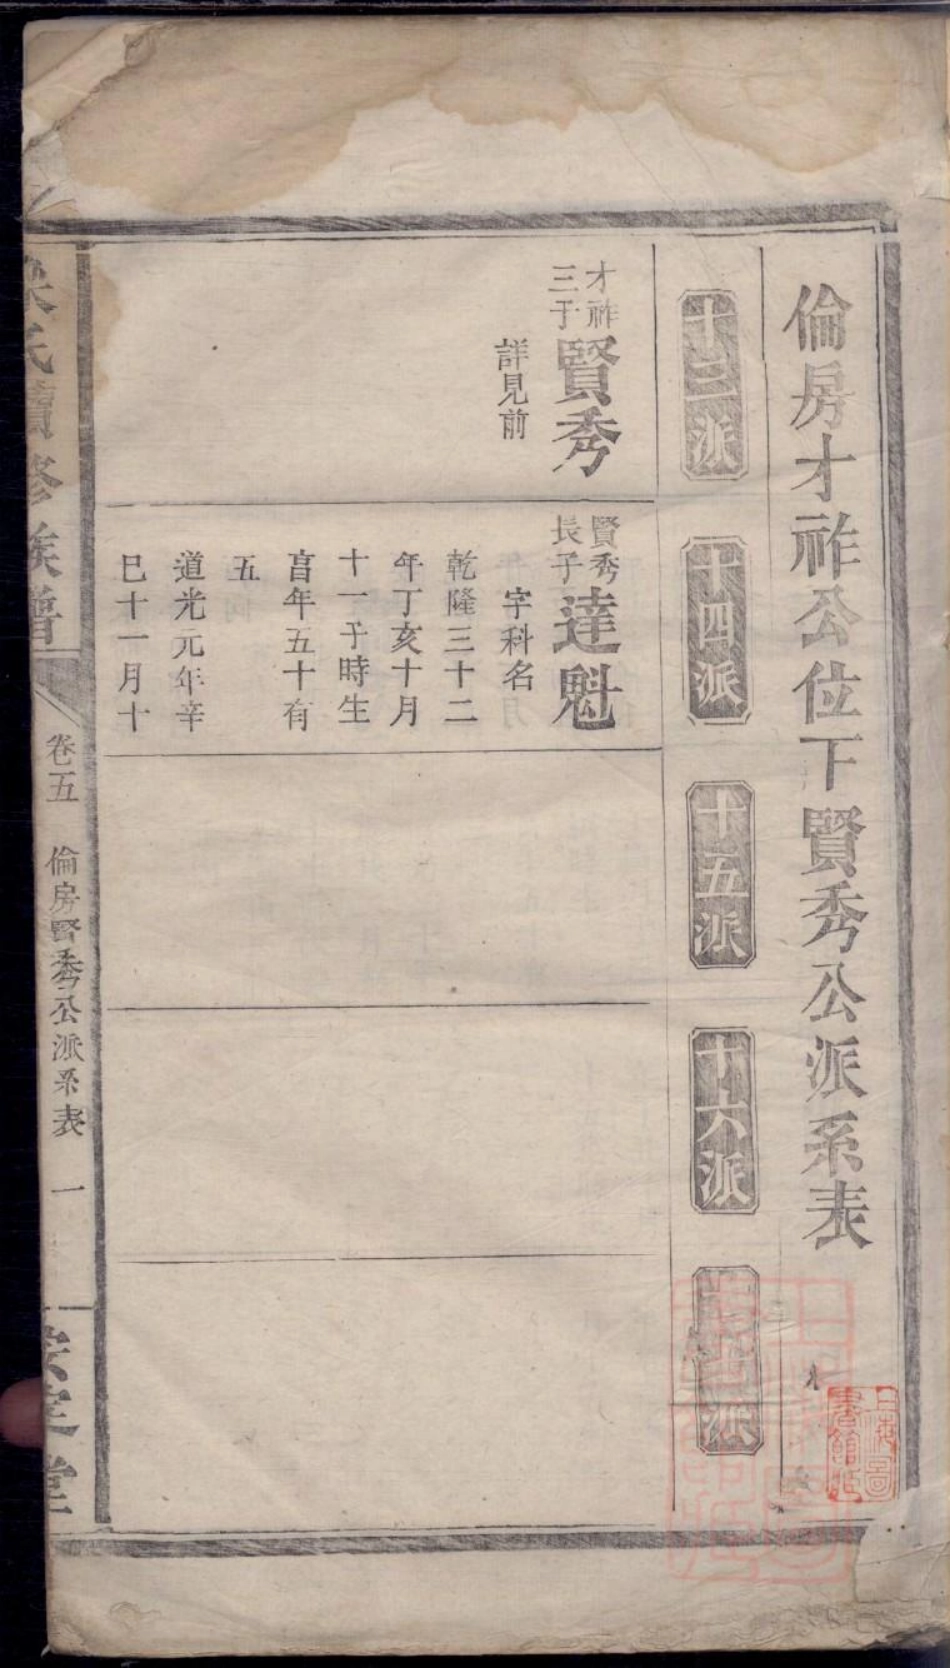 倫房才祚公位下賢秀公派系表
十三派
十四派
十五派
十六派
派
才祚
三子
賢秀
詳見前
賢秀
長子
達魁
字科名
乾隆三十二
年丁亥十月
十一子時生
亯年五十有
五
道光元年辛
巳十一月十
梁氏續修族譜
卷五
倫房賢秀公派系表
一
安定堂
上海圖
書館藏